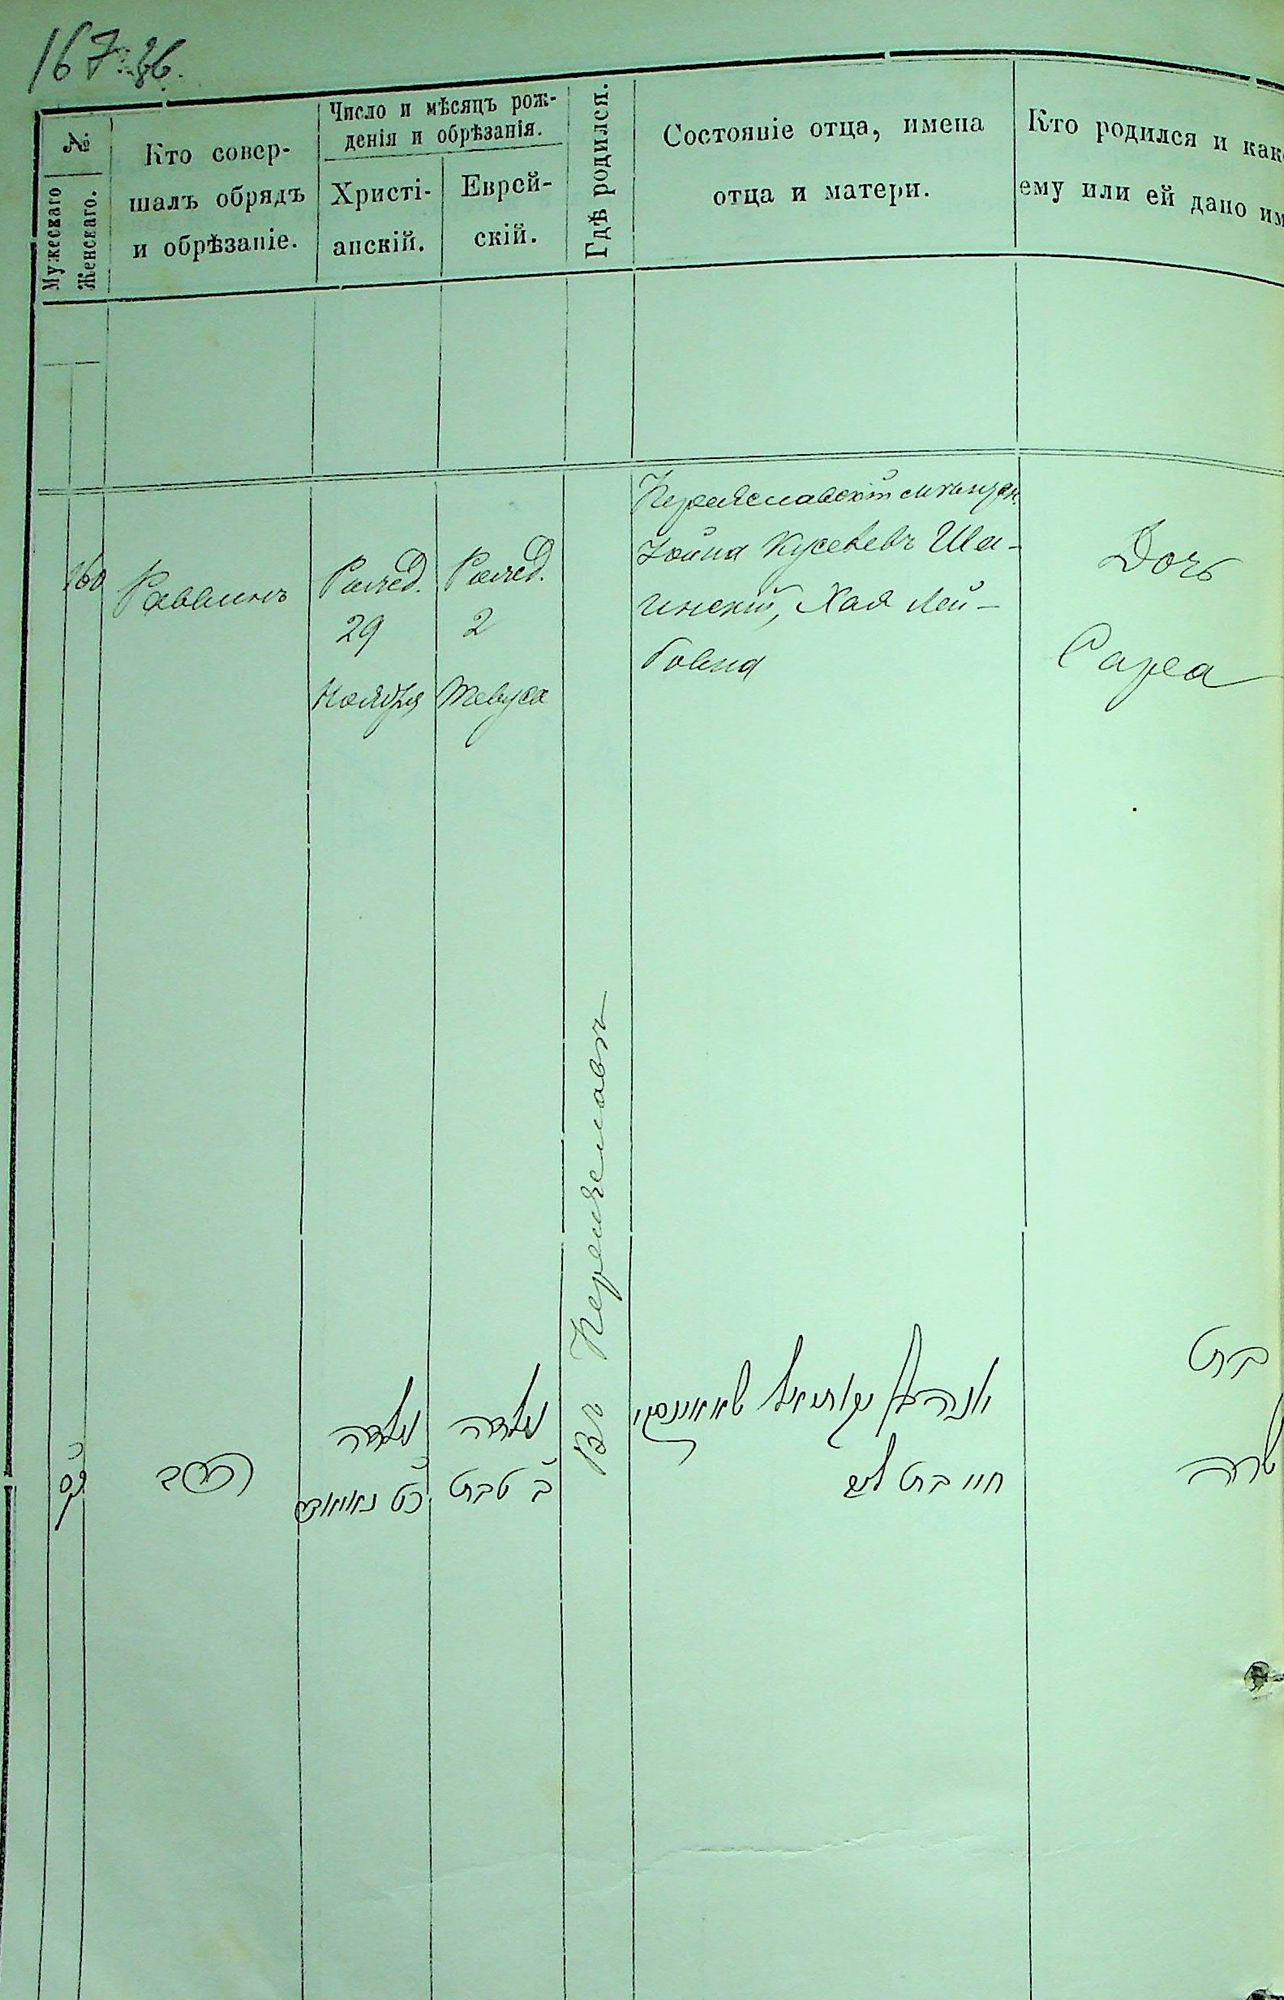 167
№
Мужескаго
Женскаго.
Кто совер-
шалъ обрядъ
и обрѣзаніе.
Число и мѣсяцъ рож-
денія и обрѣзанія.
Христі-
анскій.
Еврей-
скій.
Гдѣ родился.
Состояніе отца, имена
отца и матери.
Кто родился и как
ему или ей дано им
160
Раввинъ
Рожд.
29
Ноября
Рожд.
2
Тевуса
Въ Переяславѣ
Переяславскій мѣщан.
Іойна Кусевъ Ша-
инскій, Хая Лей-
бовна
Дочь
Сарра
קס
הרב
נולדה
כט נאיאבר
נולדה
ב טבת
חיי בת ליב
בת
שרה